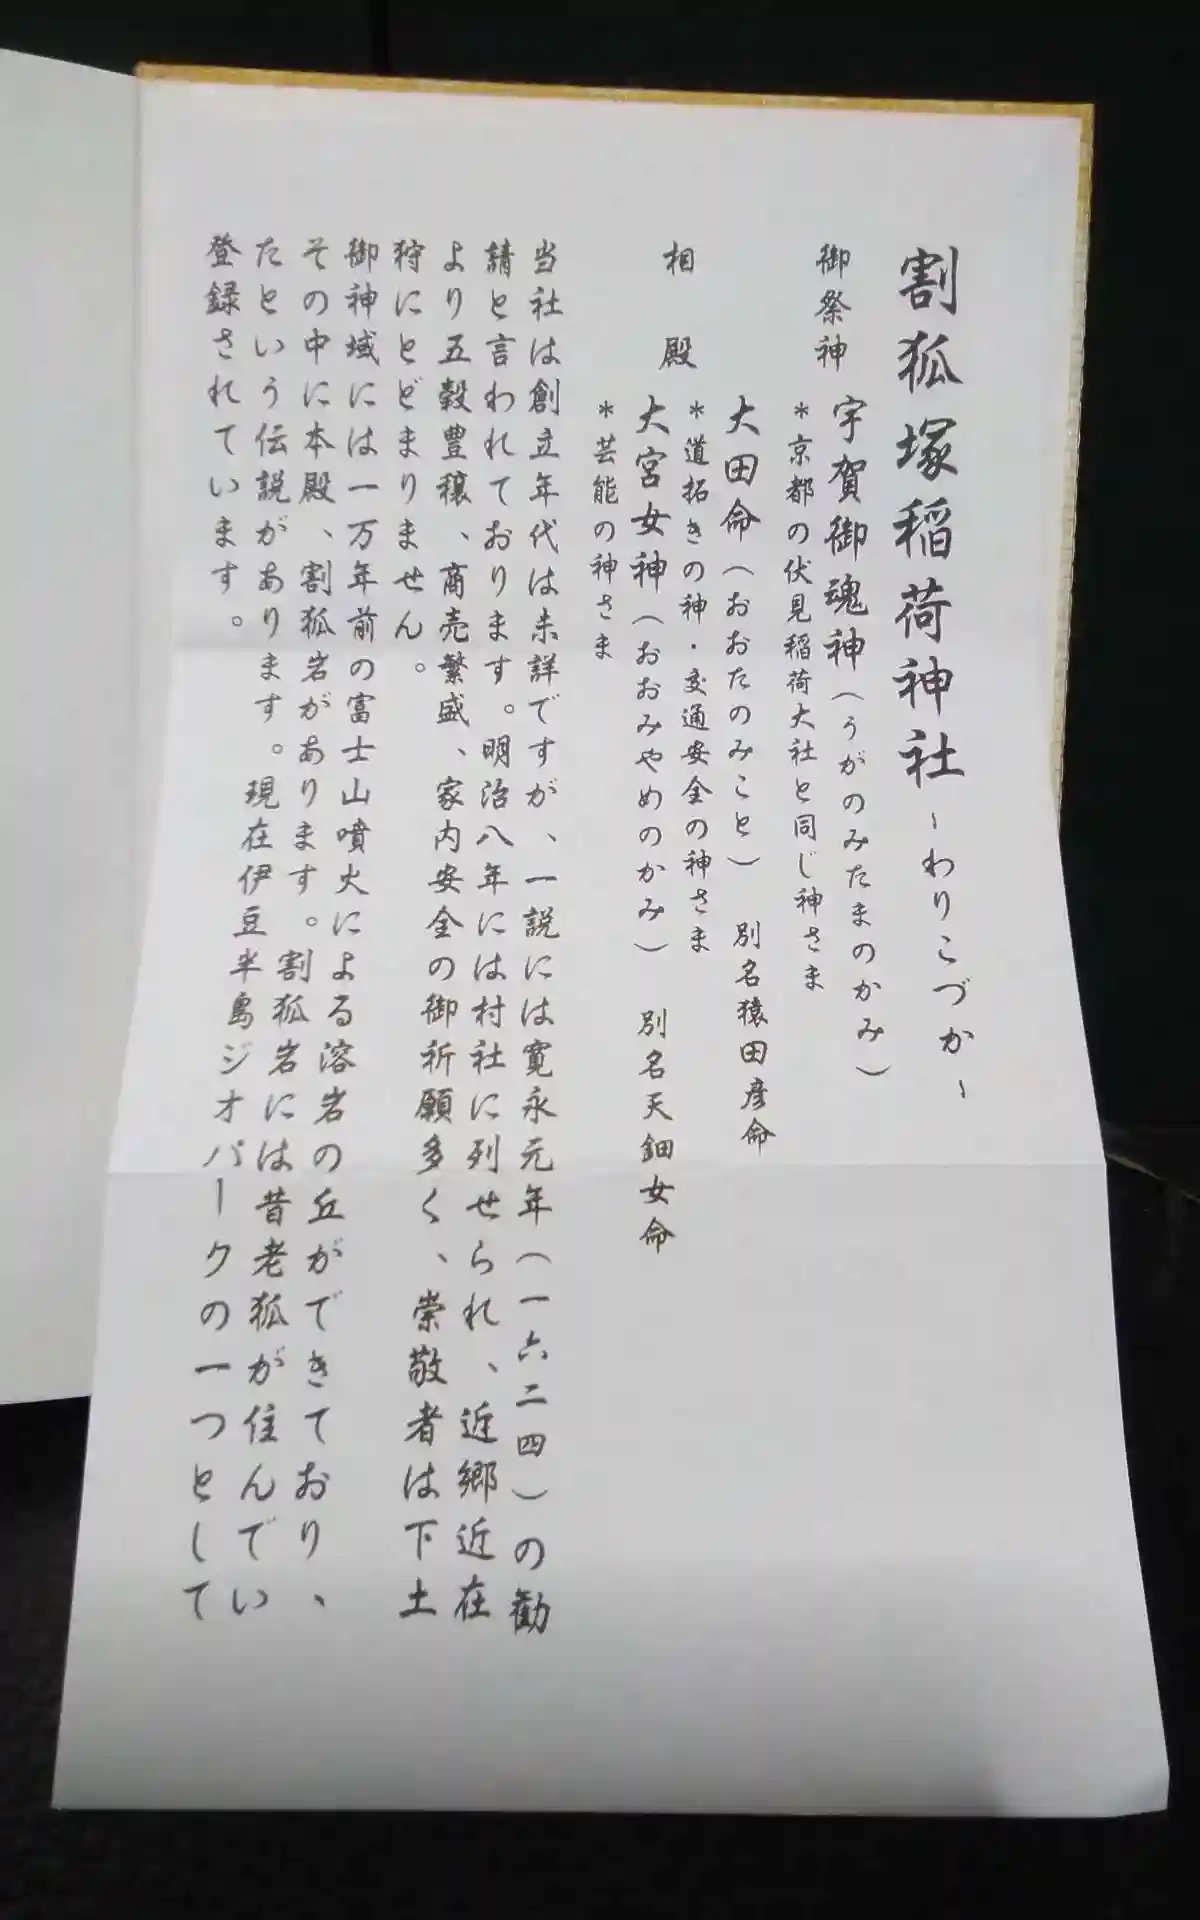 割狐塚稲荷神社 ~わりこづか~
御祭神 宇賀御魂神（うがのみたまのかみ）
＊京都の伏見稲荷大社と同じ神さま
相殿 大田命（おおたのみこと） 別名猿田彦命
＊道拓きの神・交通安全の神さま
大宮女神（おおみやめのかみ） 別名天鈿女命
＊芸能の神さま
当社は創立年代は未詳ですが、一説には寛永元年（一六二四）の勧
請と言われております。明治八年には村社に列せられ、近郷近在
より五穀豊穣、商売繁盛、家内安全の御祈願多く、崇敬者は下土
狩にとどまりません。
御神域には一万年前の富士山噴火による溶岩の丘ができており、
その中に本殿、割狐岩があります。割狐岩には昔老狐が住んでい
たという伝説があります。現在伊豆半島ジオパークの一つとして
登録されています。